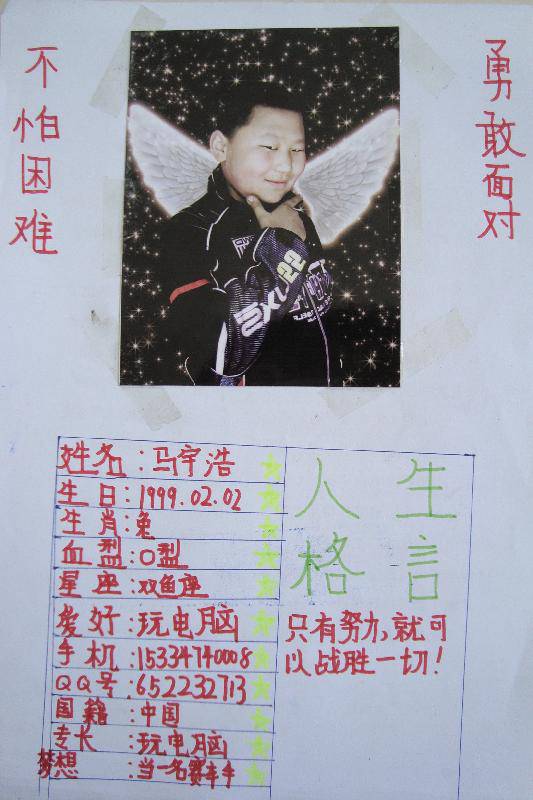 不怕困难
勇敢面对
22
姓名：马宇浩
生日：1999.02.02
生肖：兔
血型：O型
星座：双鱼座
爱好：玩电脑
手机：15334740008
QQ号：652232713
国籍：中国
专长：玩电脑
梦想：当一名赛车手
人生
格言
只有努力，就可
以战胜一切！